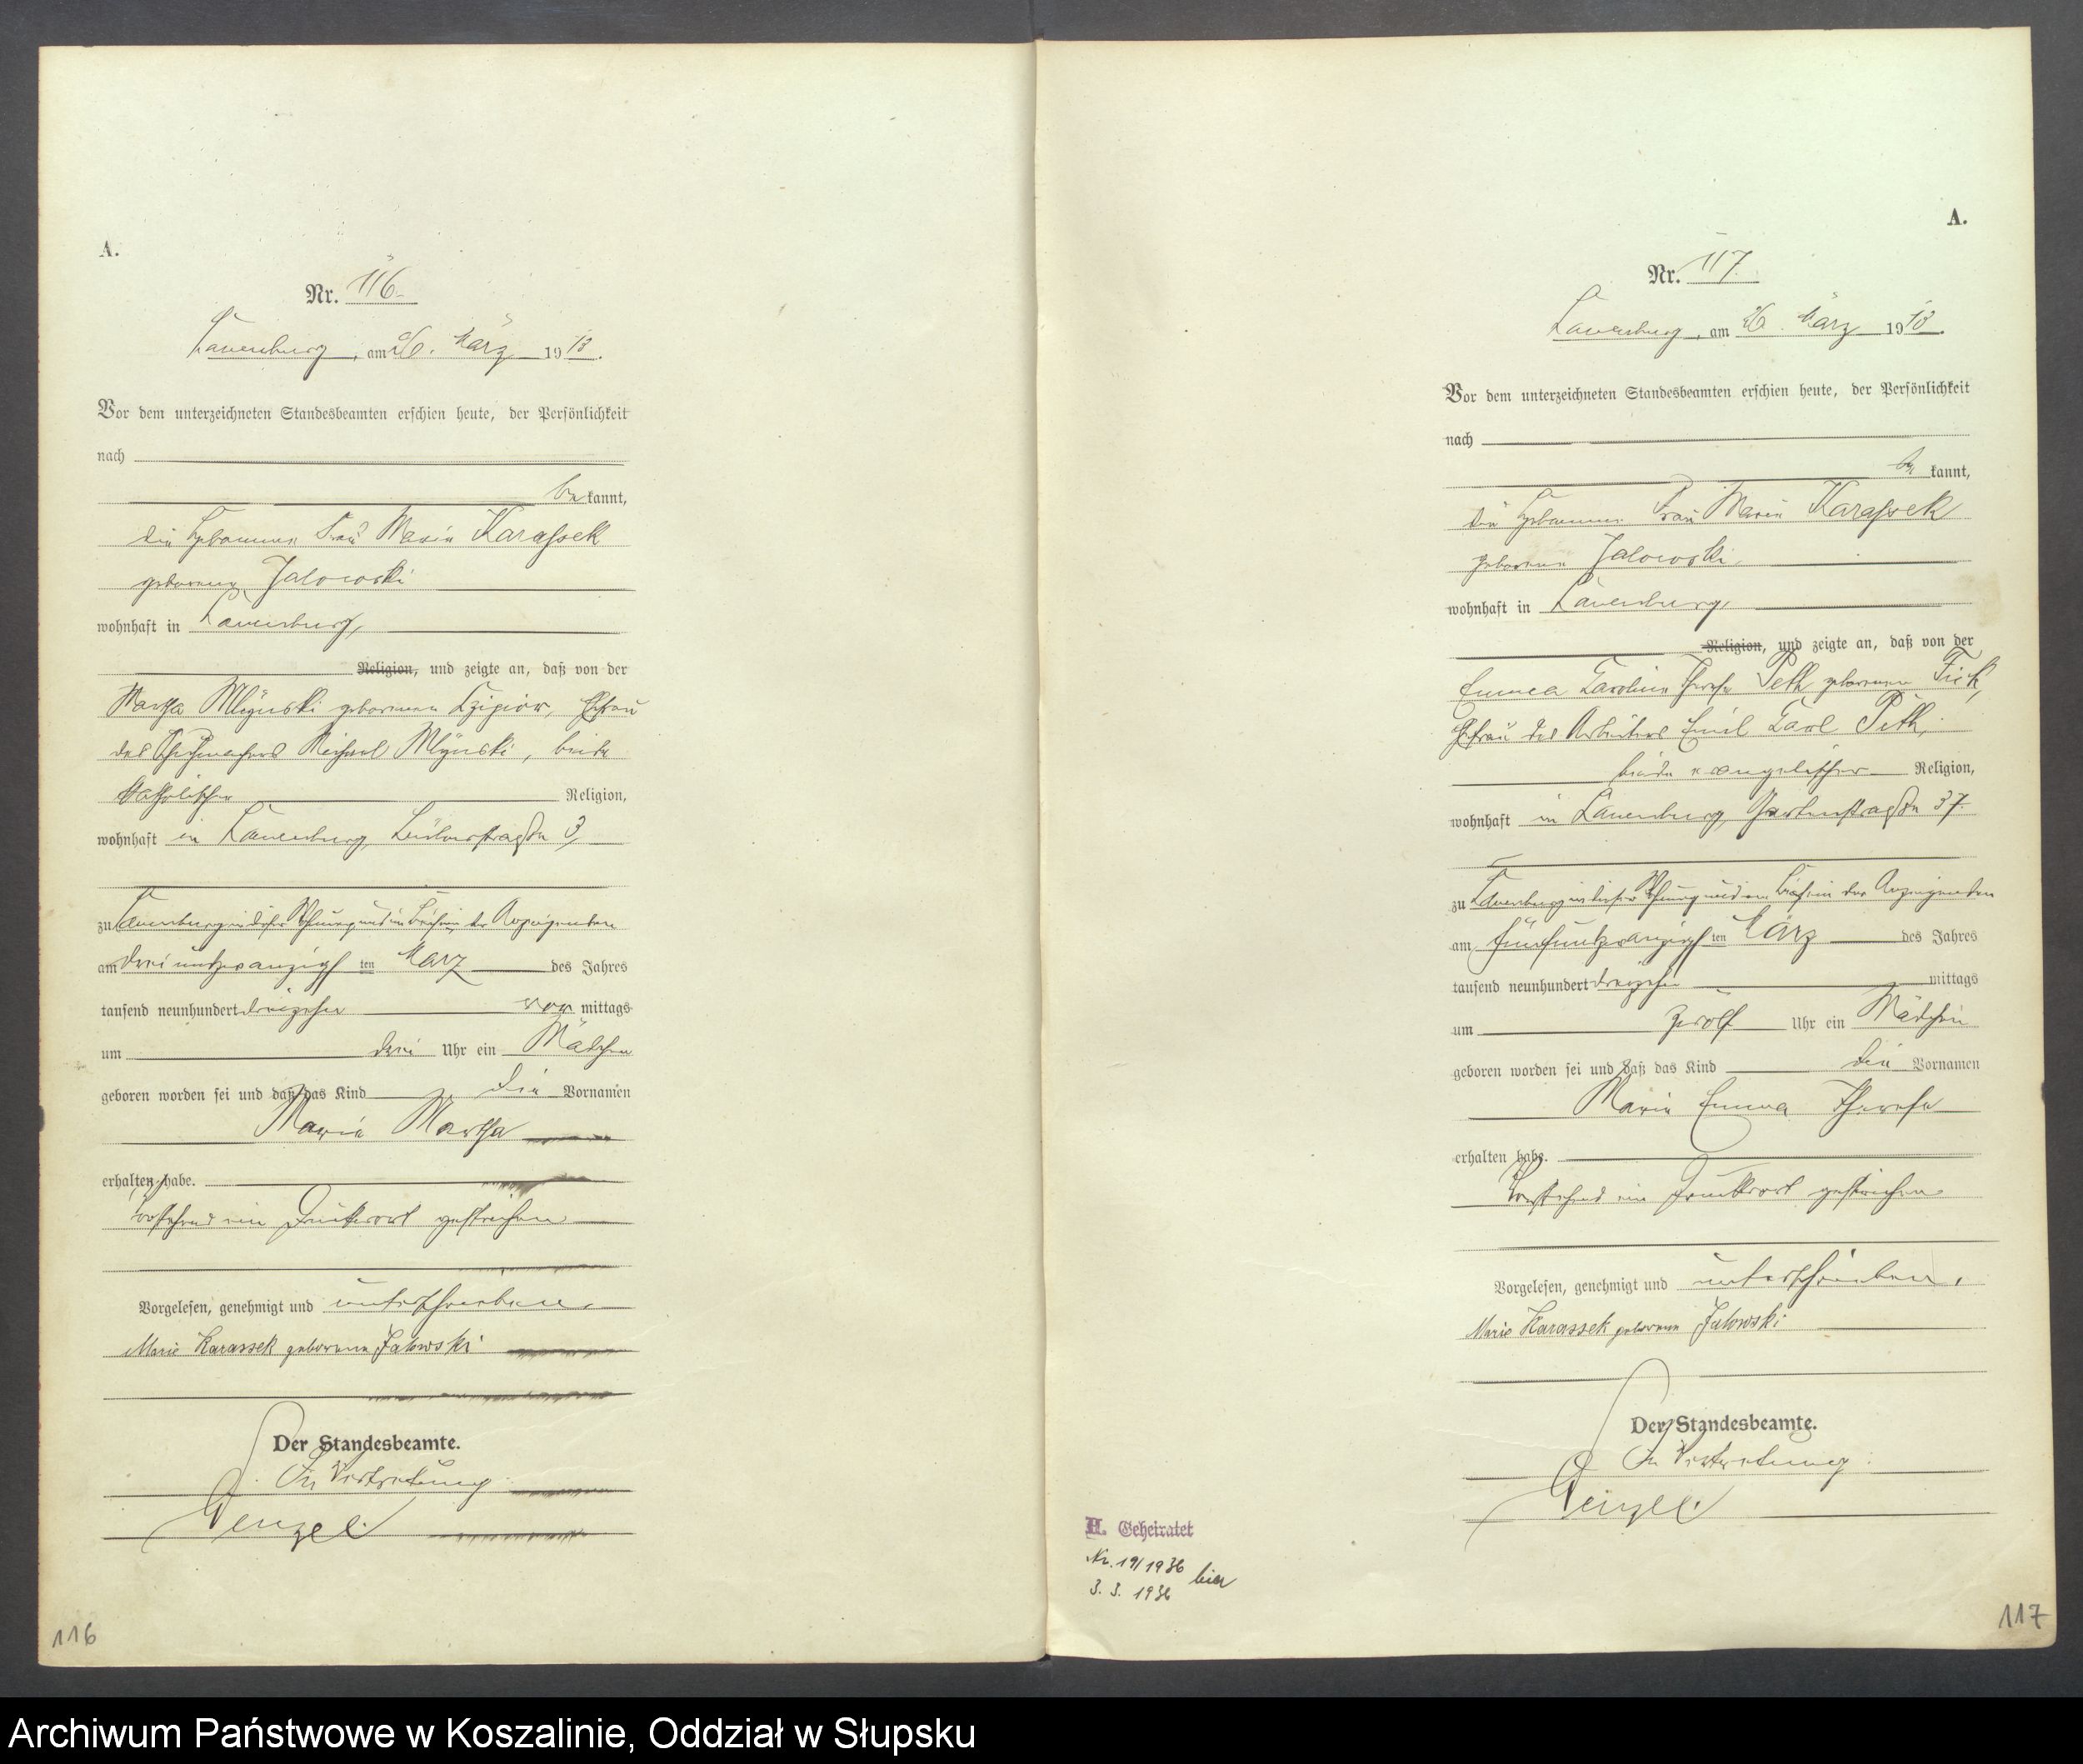 A.
Nr. 116.
Lauenburg, am 26. März 1913.
Vor dem unterzeichneten Standesbeamten erschien heute, der Persönlichkeit
nach
be kannt,
die Hebamme Frau Marie Karassek
geborene Jalowski
wohnhaft in Lauenburg,
Religion, und zeigte an, daß von der
Martha Mlynski geborenen, Ehefrau
des Schuhmachers Michael Mlynski, beide
katholischer Religion,
wohnhaft in Lauenburg, 3,
zu Lauenburg in dieser Wohnung und im Beisein der Anzeigenden
am dreiundzwanzigsten März des Jahres
tausend neunhundert dreizehn vor mittags
um drei Uhr ein Mädchen
geboren worden sei und daß das Kind die Vornamen
Maria Martha
erhalten habe.
Vorstehend ein Druckwort gestrichen
Vorgelesen, genehmigt und unterschrieben.
Marie Karassek geborene Jalowski
Der Standesbeamte.
In Vertretung.
Wenzel.
116
A.
Nr. 117.
Lauenburg, am 26. März 1913.
Vor dem unterzeichneten Standesbeamten erschien heute, der Persönlichkeit
nach
be kannt,
die Hebamme Frau Marie Karassek
geborene Jalowski
wohnhaft in Lauenburg,
Religion, und zeigte an, daß von der
Emma Karoline Therese Peth geborenen Fick,
Ehefrau des Arbeiters Emil Karl Peth,
beide evangelischer Religion,
wohnhaft in Lauenburg, Gartenstraße 37.
zu Lauenburg in dieser Wohnung und im Beisein der Anzeigenden
am fünfundzwanzigsten März des Jahres
tausend neunhundert dreizehn mittags
um zwölf Uhr ein Mädchen
geboren worden sei und daß das Kind die Vornamen
Marie Emma Therese
erhalten habe.
Vorstehend ein Druckwort gestrichen
Vorgelesen, genehmigt und unterschrieben.
Marie Karassek geborene Jalowski
Der Standesbeamte.
In Vertretung.
Wenzel.
H. Geheiratet
Nr. 19/1936 hier
3. 3. 1936
117
Archiwum Państwowe w Koszalinie, Oddział w Słupsku